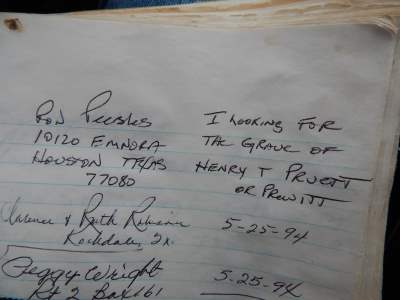 Ron Peebles
10120 Emnora
Houston Texas
77080
I Looking For
The Grave of
Henry T Pruett
or Prewitt
Clarence & Ruth
5-25-94
Rockdale, Tx.
Peggy Wright
5-25-94
Rt 2 Box 161